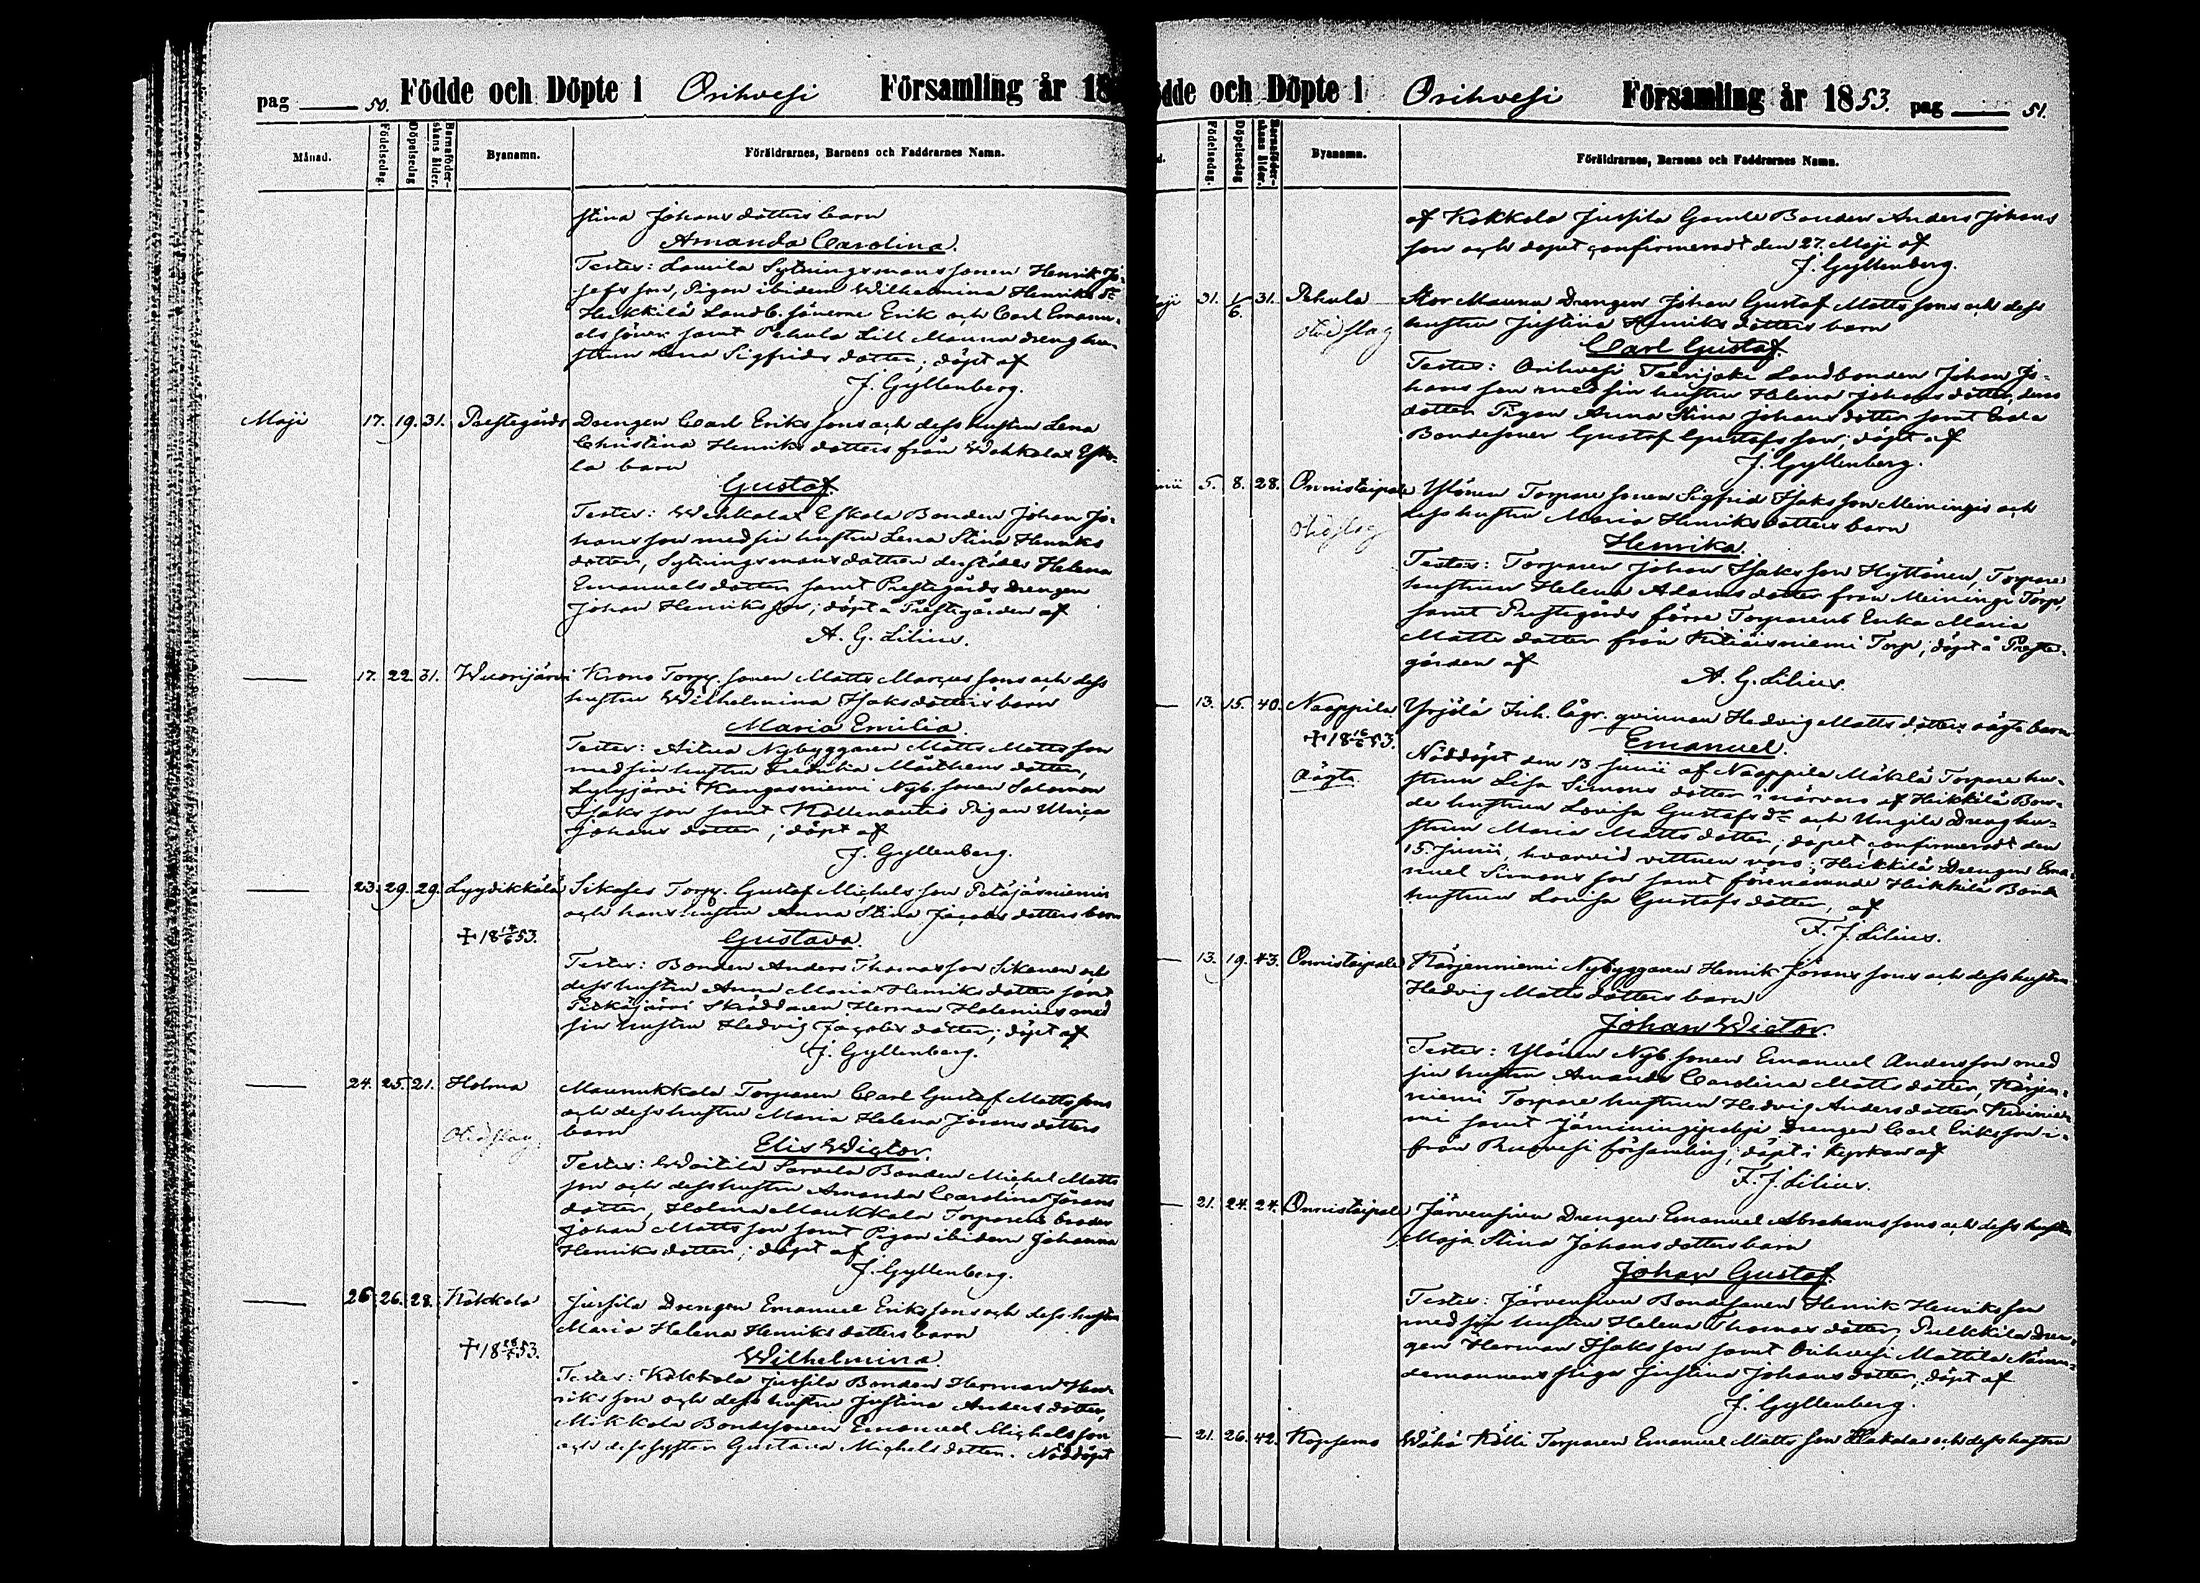 pag 50. Födde och Döpte i Orihvesi Församling år 18
Månad. Födelsedag. Döpelsedag Barnaföder-skans ålder. Byanamn. Föräldrarnes, Barnens och Faddrarnes Namn.
Stina Johans dotters barn
Amanda Carolina.
Testes: Lamila Sytningsmans sonen Henrik Jo-
sefs son, Pigan ibidem Wilhelmina Henriks dr
Heikkilä Landb. sönerne Erik och Carl Emanu-
els söner samt Pehula Lill Mauna drenghu-
strun Lena Sigfrids dotter; döpt af
J. Gyllenberg.
Maji 17. 19. 31. Prestegårds Drengen Carl Eriks sons och dess hustru Lena
Christina Henriks dotters från Wehkalax Esko-
la barn
Gustaf.
Testes: Wehkalax Eskola Bonden Johan Jo-
hans son med sin hustru Lena Stina Henriks
dotter, Sytningsmans dottren derstädes Helena
Emanuels dotter samt Prestegårds Drengen
Johan Henriks son; döpt å Prestegården af
A. G. Lilius.
17. 22. 31. Wuorijärvi Krono Torp. sonen Matts Marcus sons och dess
hustru Wilhelmina Isaks dotters barn
Maria Emilia.
Testes: Nybyggaren Matts Matts son
med sin hustru Fredrika Matthens dotter,
Lylyjärvi Kangasniemi Nyb. sonen Salomon
Isaks son samt Pigan Ulrica
Johans dotter; döpt af
J. Gyllenberg.
23. 29. 29. Lyydikkälä Sikoses Torp. Gustaf Michels son Petäjäsniemis
och hans hustru Anna Stina Jacobs dotters barn
+ 18 14/6 53.
Gustava.
Testes: Bonden Anders Thomas son Sikanen och
dess hustru Anna Maria Henriks dotter samt
Pitkäjärvi Skräddaren Herman Holenius med
sin hustru Hedvig Jacobs dotter; döpt af
J. Gyllenberg.
24. 25. 21. Holma Maunukkala Torparen Carl Gustaf Matts sons
och dess hustru Maria Helena Jörans dotters
barn
Elis Wictor.
Testes: Woitila Sarvela Bonden Michel Matts
son och dess hustru Amanda Carolina Jörans
dotter, Holma Maukkala Torparens broder
Johan Matts son samt Pigan ibidem Johanna
Henriks dotter; döpt af
J. Gyllenberg.
26 26. 28. Kokkola Jussila Drengen Emanuel Eriks sons och dess hustru
Maria Helena Henriks dotters barn
+ 18 53.
Wilhelmina.
Testes: Kokkola Jussila Bonden Herman Hen-
riks son och dess hustru Justina Anders dotter,
Mikkola Bondesonen Emanuel Michels son
och dess syster Gustava Michels dotter. Nöddöpt
dde och Döpte i Orihvesi Församling år 1853. pag 51.
d. Födelsedag. Döpelsedag Barnaföder-skans ålder. Byanamn. Föräldrarnes, Barnens och Faddrarnes Namn.
af Kokkola Jussila Gamle Bonden Anders Johans
son och dopet confirmeradt den 27. Maji af
J. Gyllenberg.
31. 1/6. 31. Pehula Stor Mauna Drengen Johan Gustaf Matts sons och dess
hustru Justina Henriks dotters barn
Carl Gustaf.
Testes: Orihvesi Teerijoki Landbonden Johan Jo-
hans son med sin hustru Helena Johans dotter, deras
dotter Pigan Anna Stina Johans dotter samt
Bondesonen Gustaf Gustafs son; döpt af
J. Gyllenberg.
5. 8. 28. Onnistaipale Ylönen Torpare sonen Sigfrid Isaks son Meiningis och
dess hustru Maria Henriks dotters barn
Henrika.
Testes: Torparen Johan Isaks son Hyttönen, Torpare
hustrun Helena Adams dotter från Meiningi Torp,
samt Prestegårds förra Torparenk Erika Maria
Matts dotter från Torp; döpt å Preste-
gården af
A. G. Lilius.
13. 15. 40. Naappila Yrjölä Inh. lägr. qvinnan Hedvig Matts dotters oägta barn
+ 18 16/6 53.
Emanuel.
oägta.
Nöddöpt den 13 Junii af Naappila Mäkelä Torpare hu-
strun Lisa Simons dotter i närvaro af Heikkilä Bon-
de hustrun Lovisa Gustafs dr och Ungila Drenghu-
strun Maria Matts dotter, dopet confirmeradt den
15. Junii, hvarvid vittnen voro: Heikkilä Drengen Ema-
nuel Simons son samt förenämnde Heikkilä Bonde
hustrun Lovisa Gustafs dotter, af
F. J. Lilius.
13. 19. 43. Onnistaipale Kärjenniemi Nybyggaren Henrik Jörans sons och dess hustru
Hedvig Matts dotters barn
Johan Wictor.
Testes: Ylönen Nyb. sonen Emanuel Anders son med
sin hustru Amanda Carolina Matts dotter, Kärjen-
niemi Torpare hustrun Hedvig Anders dotter
samt Drengen Carl Eriks son i-
från Ruovesi församling; döpt i Kyrkan af
F. J. Lilius.
21. 24. 24. Onnistaipale Järvensivu Drengen Emanuel Abrahams sons och dess hustru
Maja Stina Johans dotters barn
Johan Gustaf.
Testes: Järvensivu Bondesonen Henrik Henriks son
med sin hustru Helena Thomas dotter, Pulkkila Dren-
gen Herman Isaks son samt Orihvesi Mattila Näm-
demannens piga Justina Johans dotter; döpt af
J. Gyllenberg.
21. 26. 42. Kopsamo Wähä Kölli Torparen Emanuel Matts son och dess hustru